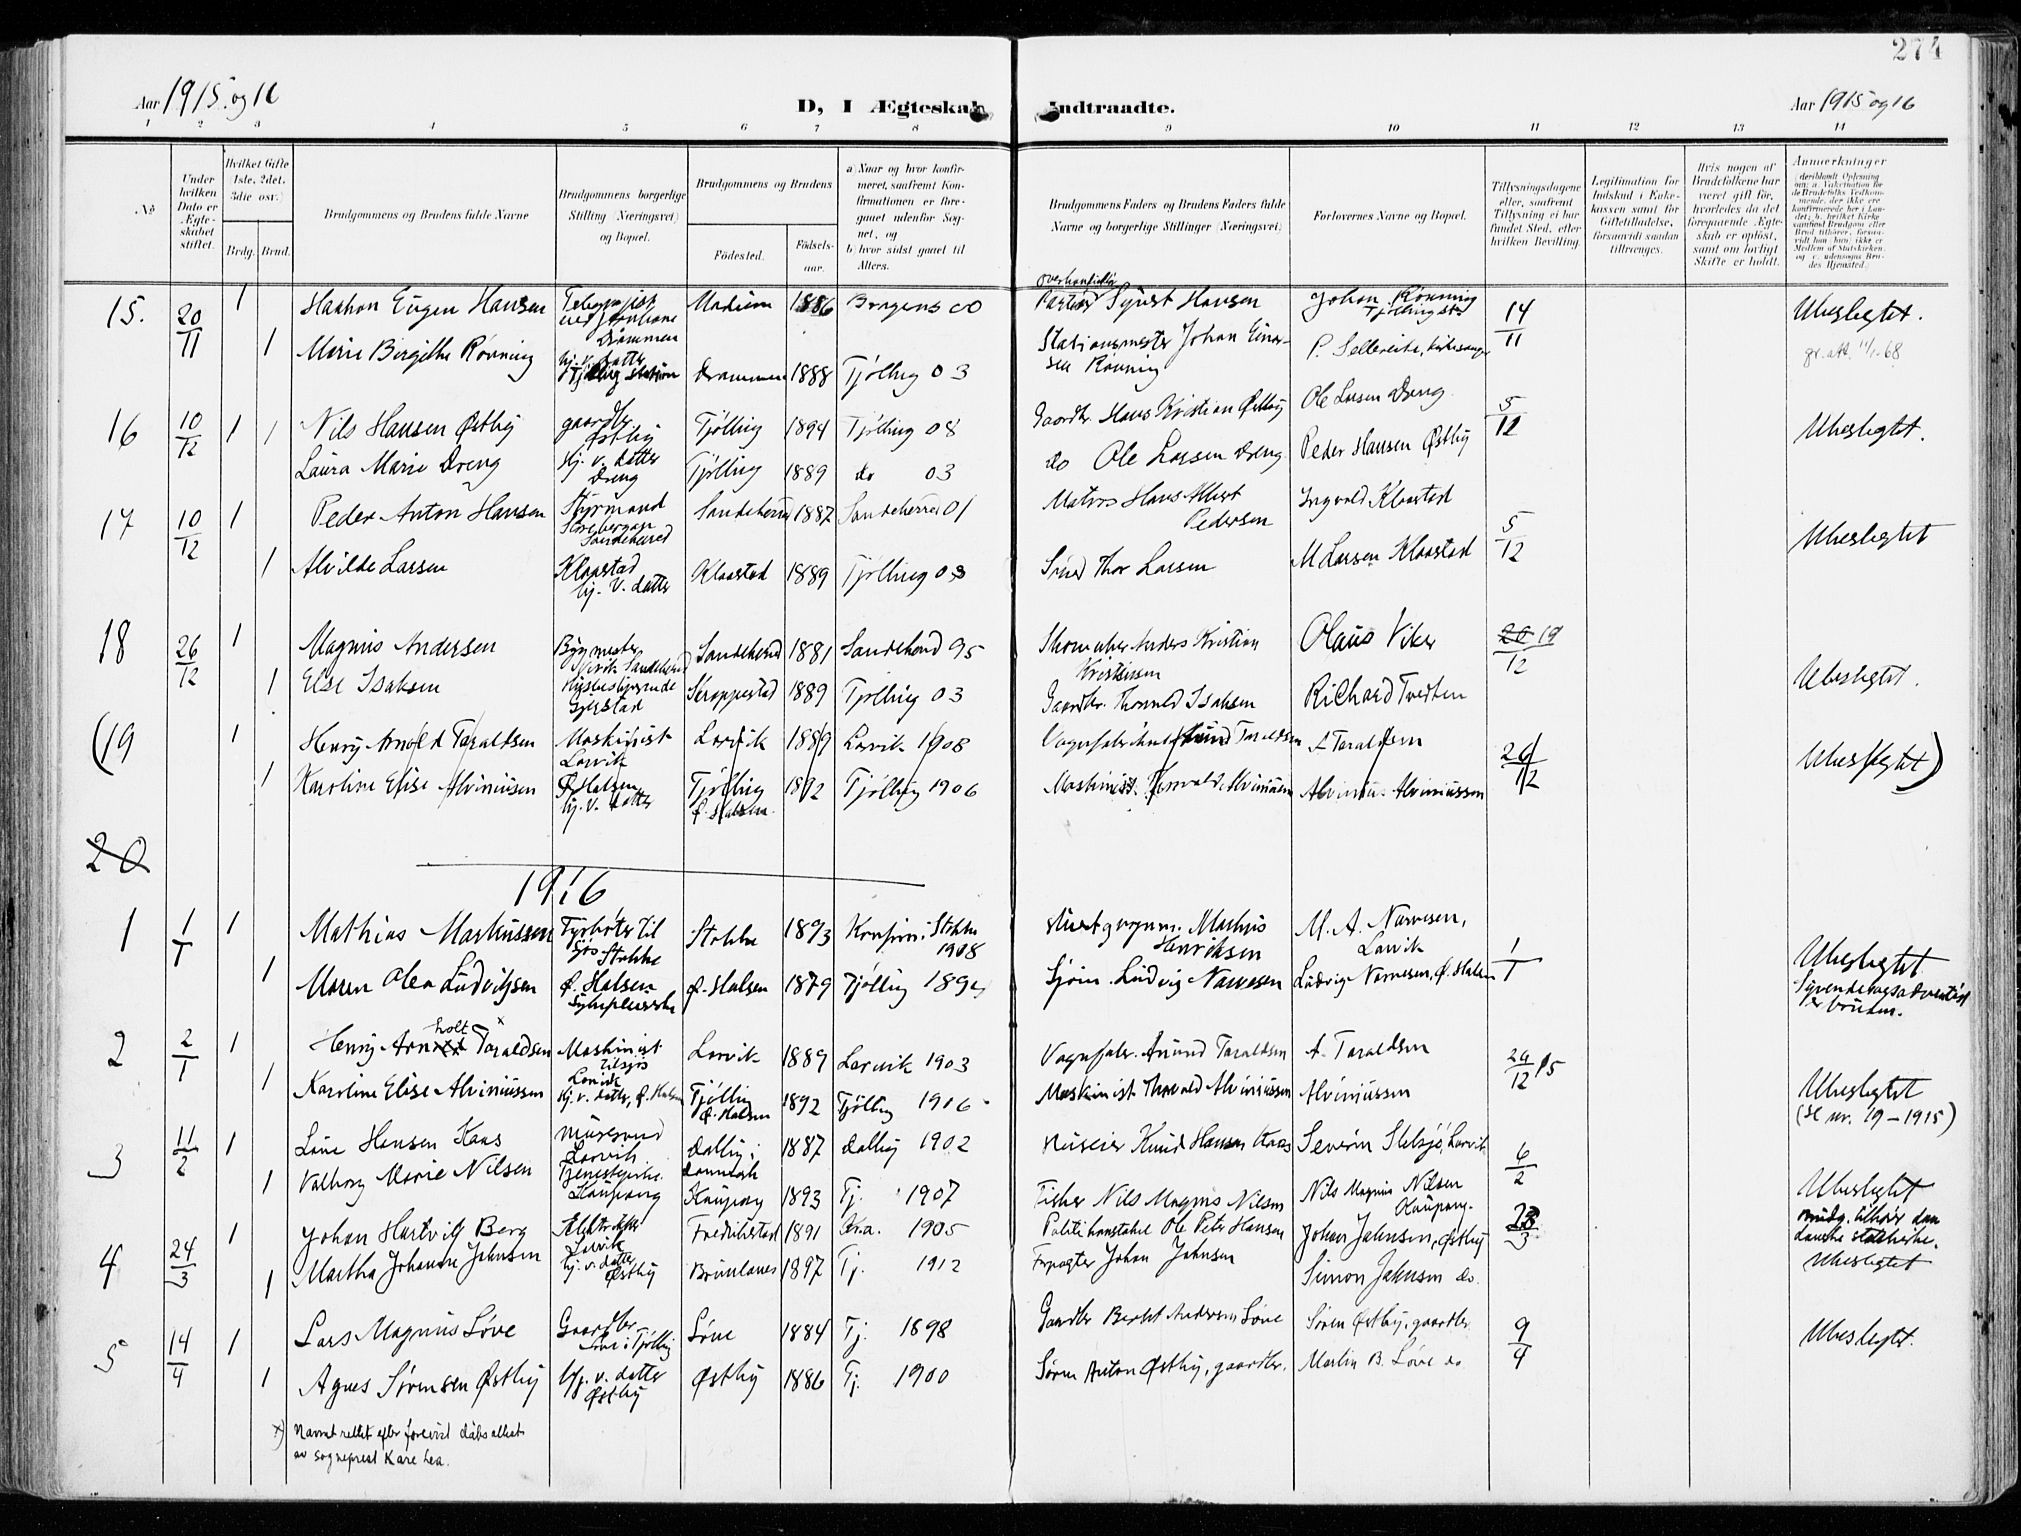 274
Aar 1915 og 16
D, I Ægteskab Indtraadte.
Aar 1915 og 16
1 2 3 4 5 6 7 8 9 10 11 12 13 14
No
Under hvilken Dato er Ægteskabet stiftet.
Hvilket Gifte 1ste, 2det, 3die osv.)
Brdg. Brud.
Brudgommens og Brudens fulde Navne
Brudgommens borgerlige Stilling (Næringsvei) og Bopæl.
Brudgommens og Brudens
Födested.
Födselsaar.
a) Naar og hvor konfirmeret, saafremt Konfirmationen er foregaaet udenfor Sognet, og
b) hvor sidst gaaet til Alters.
Brudgommens Faders og Brudens Faders fulde Navne og borgerlige Stillinger (Næringsvei)
Forlovernes Navne og Bopæl.
Tillysningsdagene eller, saafremt Tillysning ei har fundet Sted, efter hvilken Bevilling.
Legitimation for Indskud i Enkekassen samt for Giftetilladelse, forsaavidt saadan tiltrænges.
Hvis nogen af Brudefolkene har været gift før, hvorledes da det foregaaende Ægteskab er oplöst, samt om lovligt Skifte er holdt.
Anmærkninger
15. 20/11 1 Haakon Eugen Hansen Drammen Modum 1886 Bragenes 00 Syvert Hansen Johan Rönning Tjölling st. 14/11 Ubeslegtet.
1 Marie Birgithe Rönning hj. v. datter Tjölling station Drammen 1888 Tjölling 03 Stationsmester Johan Einarsen Rönning P. Sellereite, kirkesanger gr. att. 11/1-68
16 10/12 1 Nils Hansen Østby gaardbr. Østby Tjölling 1894 Tjölling 08 Gaardbr. Hans Kristian Østby Ole Larsen Dreng 5/12 Ubeslegtet.
1 Laura Marie Dreng hj. v. datter Dreng Tjölling 1889 do 03 do Ole Larsen Dreng Peder Hansen Østby
17 10/12 1 Peder Anton Hansen Styrmand Sandeherred Sandeherred 1887 Sandeherred 01 Matros Hans Albert Pedersen Ingvald Klaastad 5/12 Ubeslegtet
1 Alvilde Larsen Klaastad hj. v. datter Klaastad 1889 Tjölling 03 Smed Thor Larsen M Larsen Klaastad
18 26/12 1 Magnus Andersen Bygmester Sandeherred Sandeherred 1881 Sandeherred 95 Skomaker Anders Kristian Kristensen Olaus Viker 20 19/12 Ubeslegtet.
1 Else Isaksen Gjerstad Skreppestad 1889 Tjölling 03 Gaardbr. Thorvald Isaksen Richard Tvedten
(19 1 Henry Arnold Taraldsen Maskinist Larvik Larvik 1889 Larvik 1908 Taraldsen A Taraldsen 26/12 Ubeslegtet)
1 Karoline Elise Alviniussen Ø Halsen hj. v. datter Tjölling Ø. Halsen 1892 Tjölling 1906 Maskinist Thorvald Alviniussen Alviniussen
20
1916
1 1/1 1 Mathias Markussen Fyrböter til sjös Stokke Stokke 1893 Konfirm. Stokke 1908 Markus Henriksen M. A. Narvesen, Larvik 1/1 Ubeslegtet
1 Maren Olea Ludvigsen Ø. Halsen Ø. Halsen 1879 Tjölling 1894 Sjöm. Ludvig Narvesen Ludvig Narvesen, Ø. Halsen Syvendedagsadventist er bruden.
2 2/1 1 Henry Arnholt x Taraldsen Maskinist tilsjös Larvik Larvik 1889 Larvik 1903 Vognfabr. Anund Taraldsen A. Taraldsen 24/12 15
1 Karoline Elise Alviniussen hj. v. datter, Ø. Halsen Tjölling Ø. Halsen 1892 Tjölling 1906 Maskinist Thorvald Alviniussen Alviniussen Ubeslegtet (se nr. 19 – 1915)
3 11/2 1 Lune Hansen Kaas Mursvend Larvik Dalby i Danmark 1887 Dalby 1902 Knud Hansen Kaas Severin Stelsjö, Larvik 6/2
1 Valborg Marie Nilsen Tjenestepike Kaupang Kaupang 1893 Tj. 1907 Fisker Nils Magnus Nilsen Nils Magnus Nilsen Kaupang. Ubeslegtet brudg. tilhörer den danske statskirke.
4 24/3 1 Johan Hartvig Berg Larvik Fredrikstad 1891 Kra. 1905 Politikonstabel Ole Peter Hansen Johan Jahnsen, Østby 23/3 Ubeslegtet
1 Martha Johanne Jahnsen hj. v. datter Østby Brunlanes 1897 Tj. 1912 Forpagter Johan Jahnsen Simon Jahnsen do.
5 14/4 1 Lars Magnus Löve Gaardbr Löve i Tjölling Löve 1884 Tj. 1898 Gaardbr Berthel Andersen Löve Sören Østby, gaardbr 9/4 Ubeslegtet.
1 Agnes Sörensen Østby hj. v. datter Østby Østby 1886 Tj. 1900 Sören Anton Østby, gaardbr. Martin B. Löve do
x) Navnet rettet efter forevist dåbsattest
av sogneprest Kåre Lea.